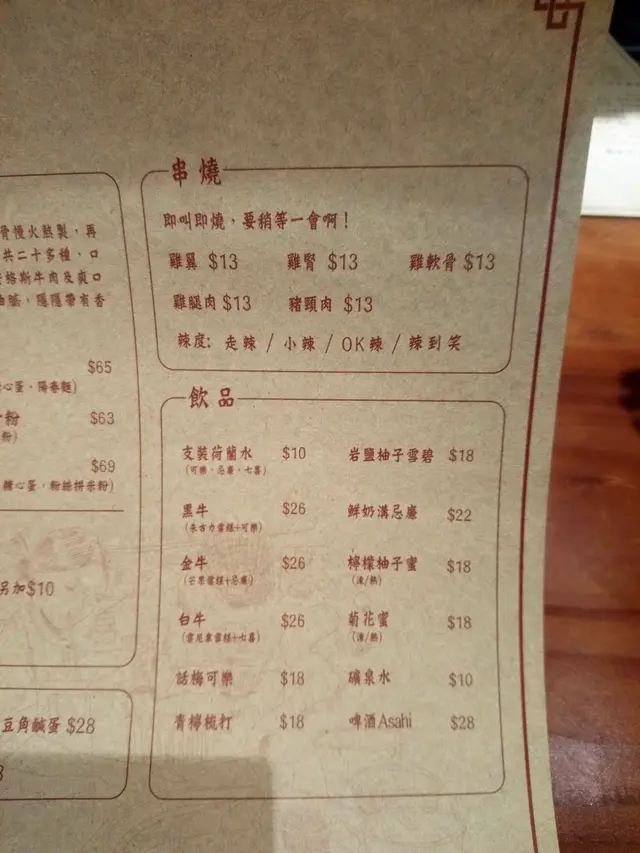 骨慢火熬製，再
共二十多種，口
斯牛肉及爽口
隱隱帶有香
$65
心蛋，陽春麵)
粉 $63
粉)
$69
糖心蛋，粉絲拼米粉)
另加$10
豆角鹹蛋 $28
串燒
即叫即燒，要稍等一會啊！
雞翼 $13 雞腎 $13 雞軟骨 $13
雞腿肉 $13 豬頸肉 $13
辣度: 走辣 / 小辣 / OK辣 / 辣到笑
飲品
支裝荷蘭水 $10 岩鹽柚子雪碧 $18
(可樂，忌廉，七喜)
黑牛 $26 鮮奶溝忌廉 $22
(朱古力雪糕+可樂)
金牛 $26 檸檬柚子蜜 $18
(芒果雪糕+忌廉) (凍/熱)
白牛 $26 菊花蜜 $18
(雲尼拿雪糕+七喜) (凍/熱)
話梅可樂 $18 礦泉水 $10
青檸梳打 $18 啤酒Asahi $28